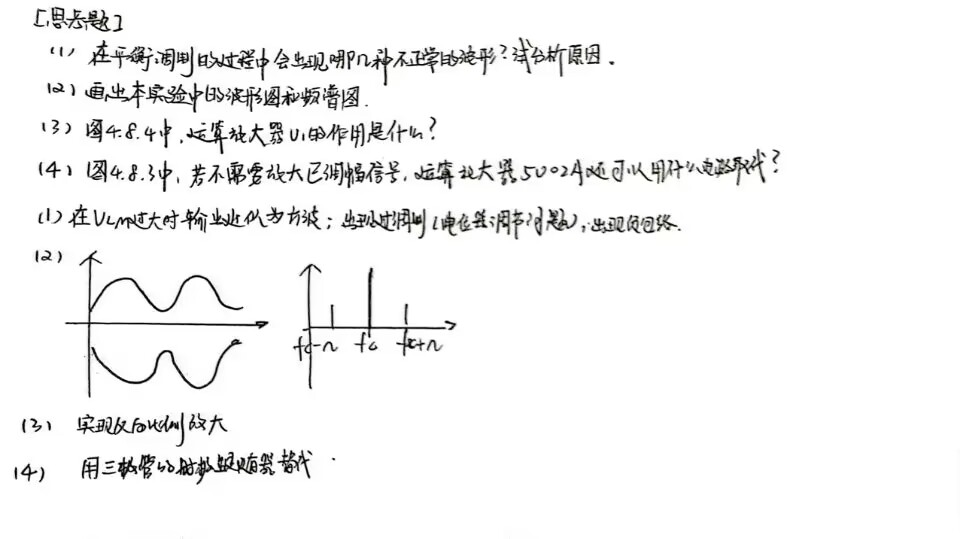 [思考题]
(1) 在平衡调制的过程中会出现哪几种不正常的波形？试分析原因．
(2) 画出本实验中的波形图和频谱图．
(3) 图4.8.4中，运算放大器U₁的作用是什么？
(4) 图4.8.3中，若不需要放大已调幅信号，运算放大器5002A还可以用什么电路取代？
(1) 在VΩm过大时输出近似为方波；出现过调制（电位器调节问题），出现负包络．
(2)
fc-Ω fc fc+Ω
(3) 实现反向比例放大
(4) 用三极管的射极跟随器替代．